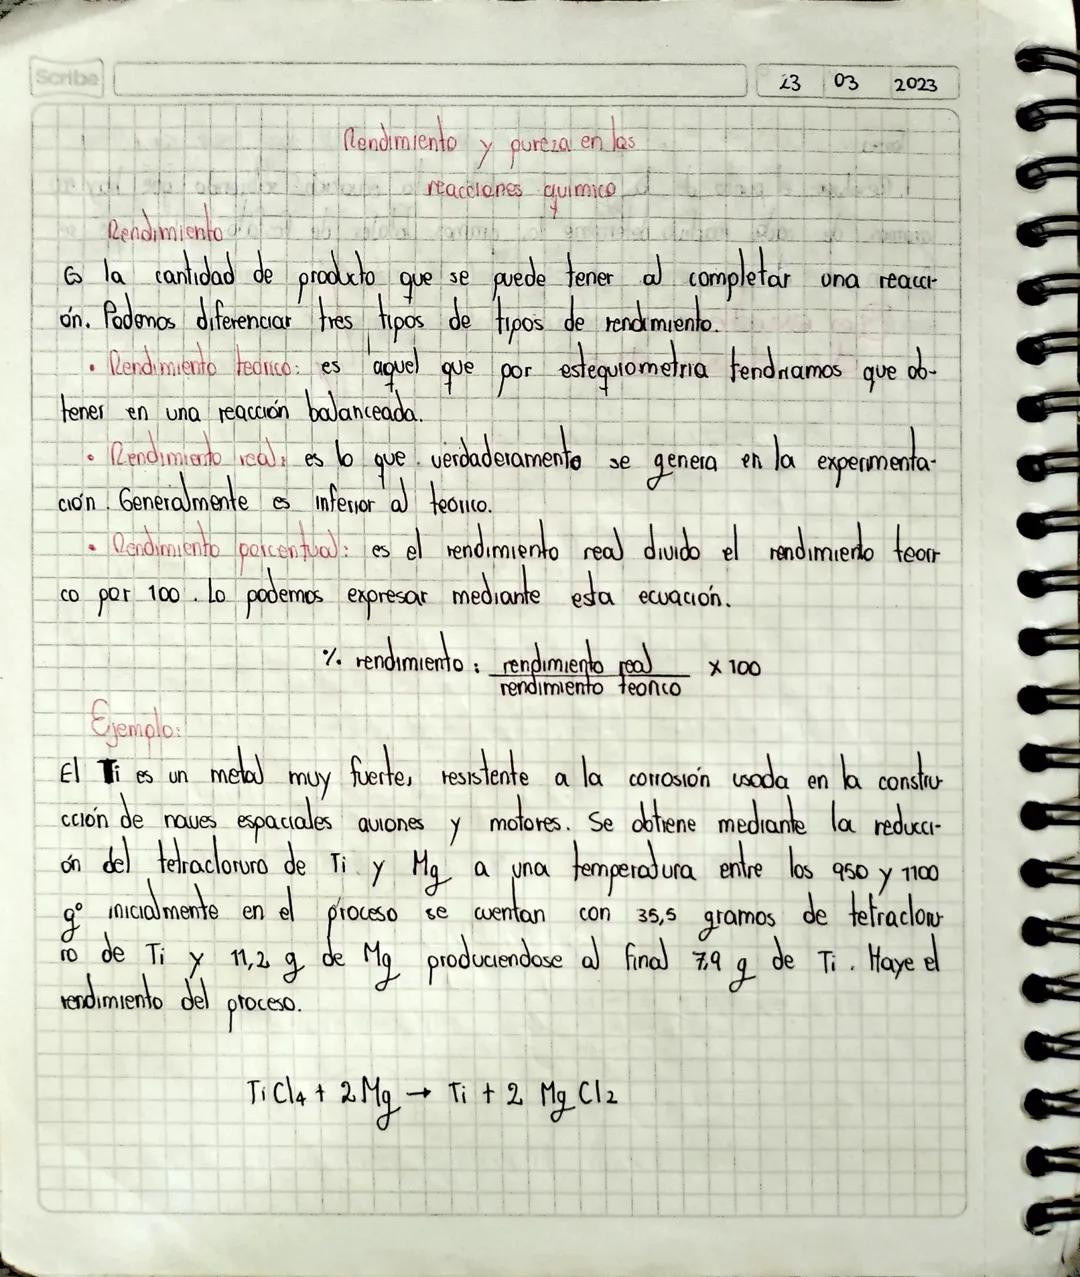 Scribe
23 03 2023
Rendimiento y pureza en las
reacciones quimico
Rendimiento
Es la cantidad de producto que se puede tener al completar una reacci-
ón. Podemos diferenciar tres tipos de tipos de rendimiento.
• Rendimiento teorico: es aquel que por estequiometria tendriamos que ob-
tener en una reacción balanceada.
• Rendimiento real: es lo que verdaderamento se genera en la experimenta-
ción. Generalmente es inferior al teorico.
• Rendimiento porcentual: es el rendimiento real divido el rendimiento teori
co por 100. Lo podemos expresar mediante esta ecuación.
% rendimiento: rendimiento real x 100
rendimiento teorico
Ejemplo:
El Ti es un metal muy fuerte, resistente a la corrosión usada en la constru
cción de naves espaciales aviones y motores. Se obtiene mediante la reducci-
ón del tetracloruro de Ti y Mg a una temperatura entre los 950 y 1100
g° inicialmente en el proceso se cuentan con 35,5 gramos de tetracloru
ro de Ti y 11,2 g de Mg produciendose al final 7,9 g de Ti. Haye el
rendimiento del proceso.
TiCl4 + 2Mg → Ti + 2 MgCl2